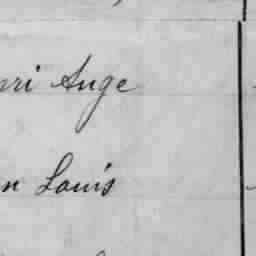 nri Ange
n Louis